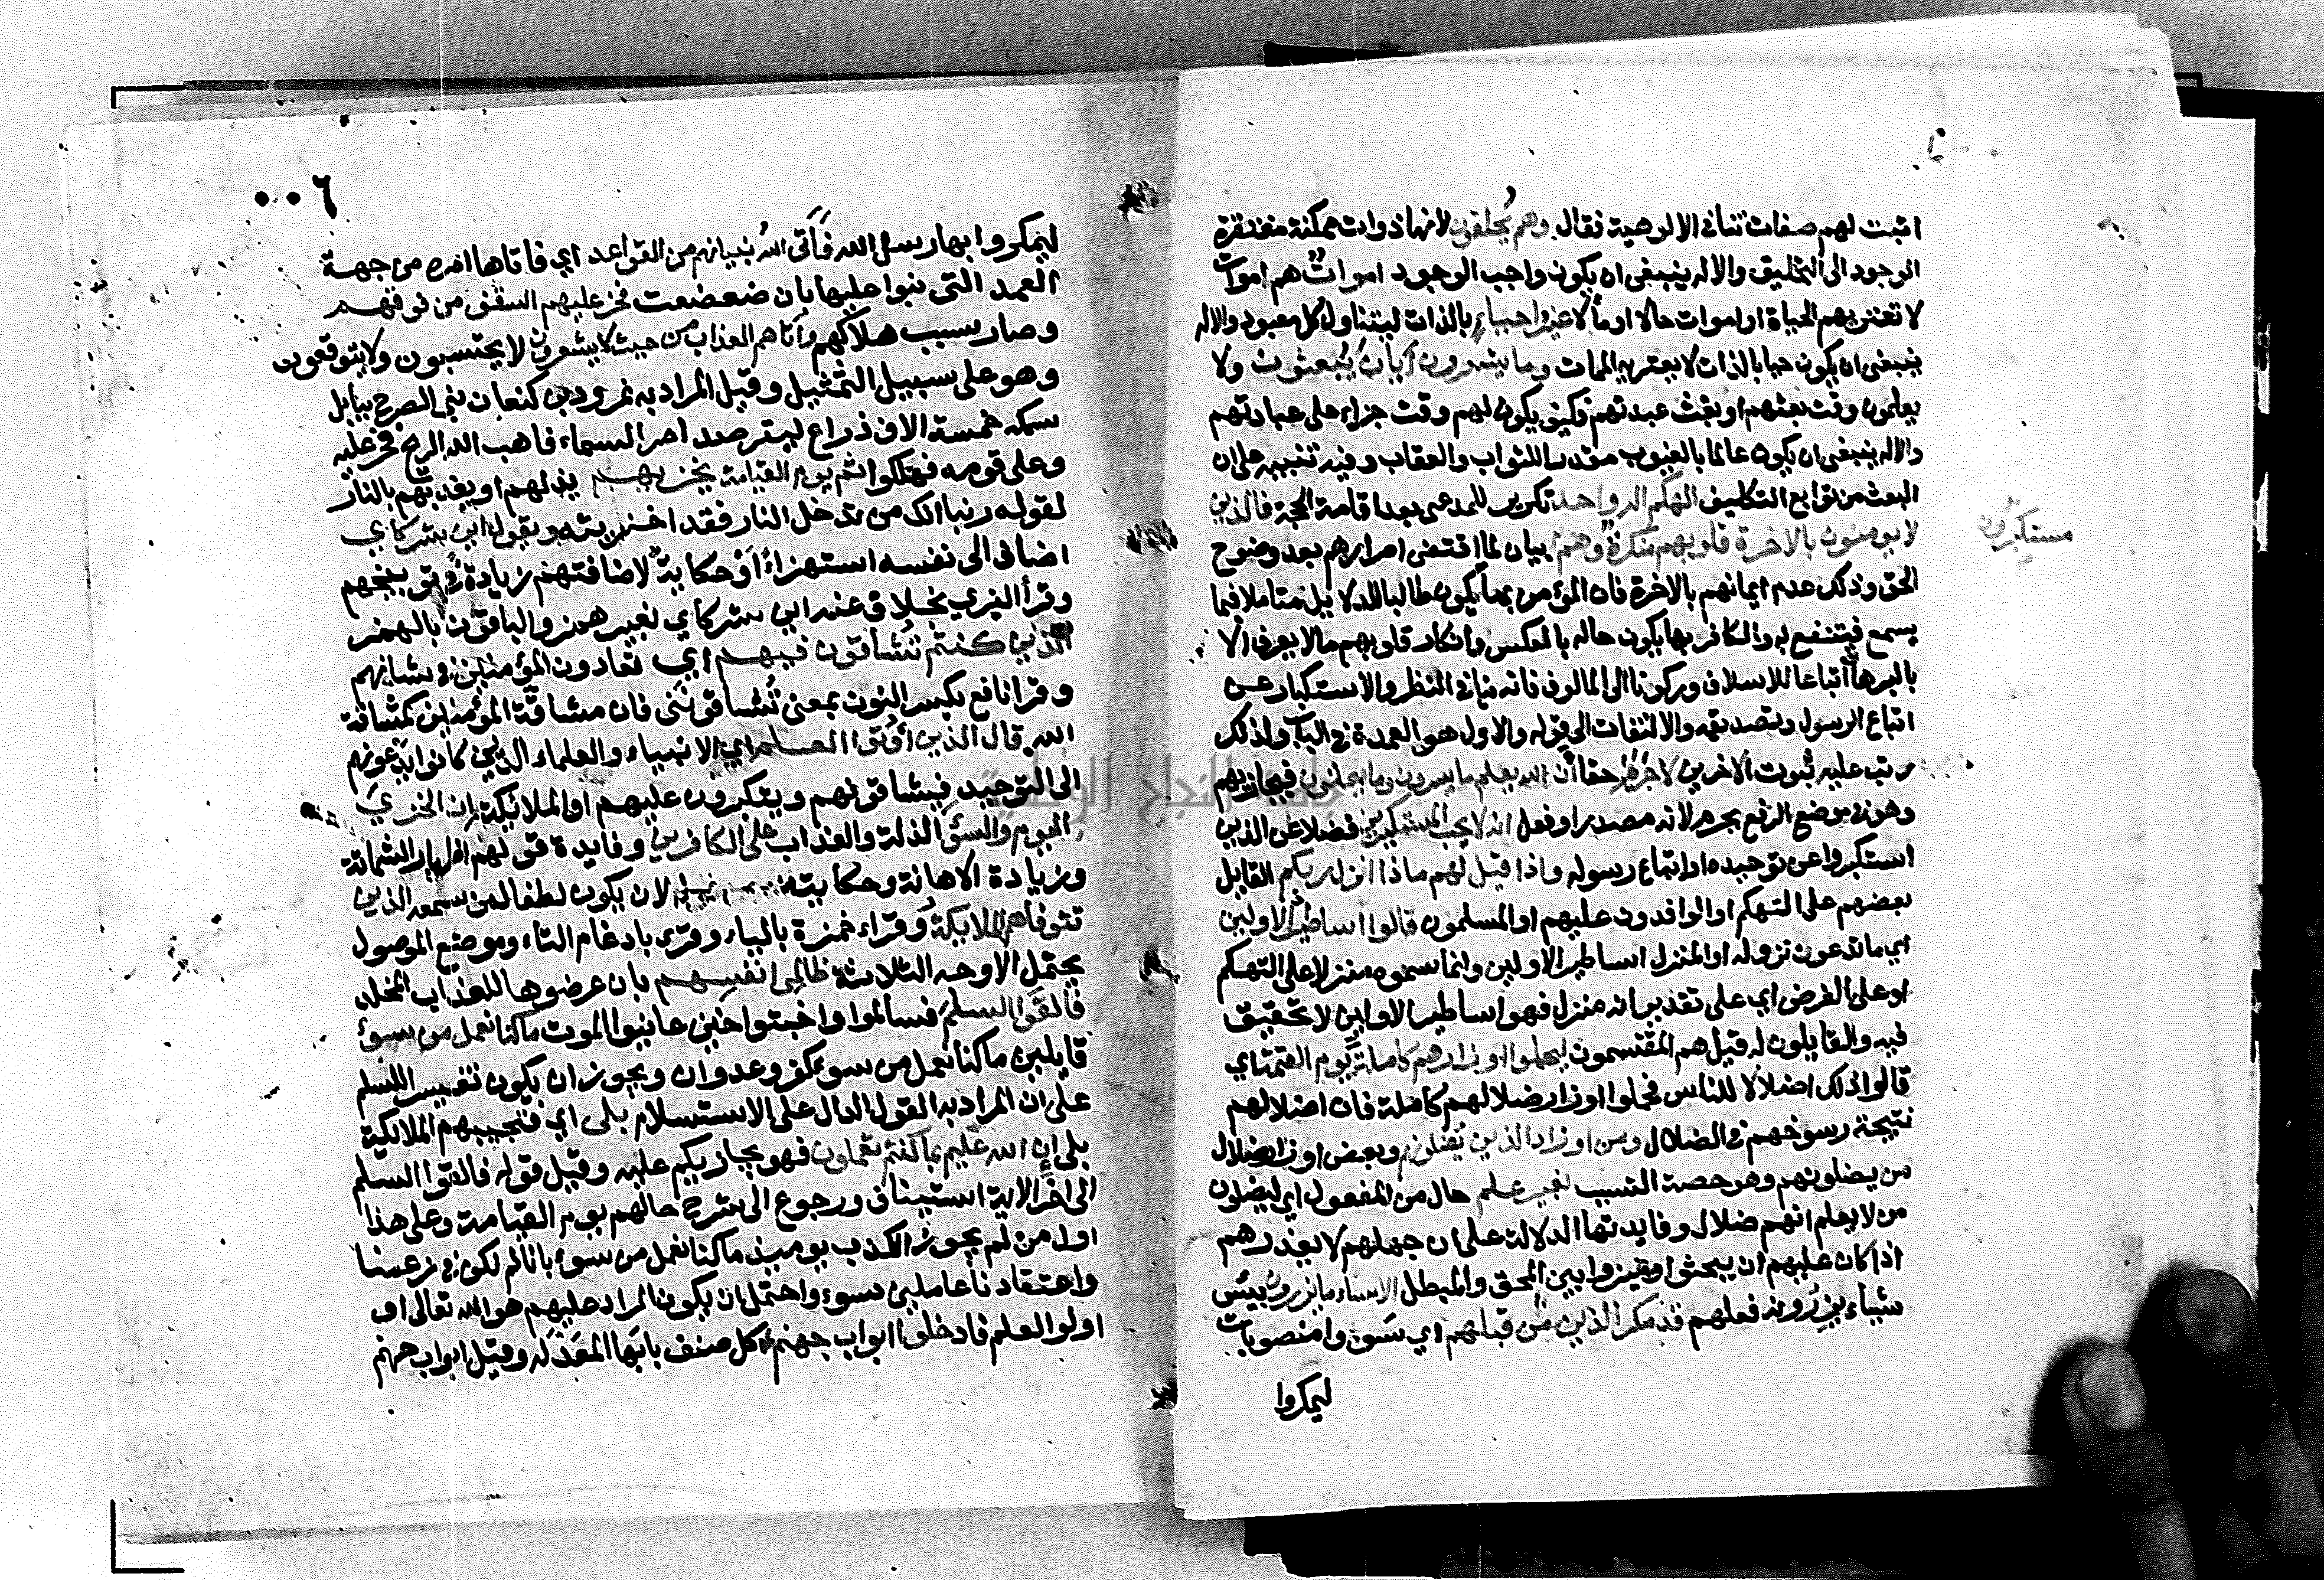 اثبت لهم صفات تنافي الالوهية فقال وهم يُخلقون لانها ذوات ممكنة مفتقرة
الوجود الى التخليق والاله ينبغى ان يكون واجب الوجود امواتٌ هم اموات
لا تعتريهم الحياة او اموات حالا او مآلا غير احياءٍ بالذات ليتناول كل معبود والاله
ينبغى ان يكون حيا بالذات لا يعتريه الممات وما يشعرون أيان يُبعثون ولا
يعلمون وقت بعثهم او بعث عبدتهم فكيف يكون لهم وقت جزاء على عبادتهم
والاله ينبغى ان يكون عالما بالغيوب مقدرا للثواب والعقاب وفيه تنبيه على ان
البعث من توابع التكليف الهكم اله واحد تكرير للمدعى بعد اقامة الحجة فالذين
لا يومنون بالاخرة قلوبهم منكرة وهم بيان لما اقتضى اصرارهم بعد وضوح
مستكبرون
الحق وذلك عدم ايمانهم بالاخرة فان المؤمن بها يكون طالبا للدلايل متاملا فيما
يسمع فينتفع به والكافر بها يكون حاله بالعكس وانكار قلوبهم مالا يعرف الا
بالبرهان اتباعا للاسلاف وركونا الى المالوف فانه ينافي النظر والاستكبار عن
اتباع الرسول وتصديقه والالتفات الى قوله والاول هو العمدة في الباب ولذلك
رتب عليه ثبوت الاخرين لاجرم حقا أن الله يعلم ما يسرون وما يعلنون فيجازيهم
وهو في موضع الرفع بجرم لانه مصدر او فعل انه لا يحب المستكبرين فضلا عن الذين
استكبروا عن توحيده او اتباع رسوله واذا قيل لهم ماذا انزل ربكم القايل
بعضهم على التهكم او الوافدون عليهم او المسلمون قالوا اساطير الاولين
اي ما تدعون نزوله او المنزل اساطير الاولين وانما سموه منزلا على التهكم
او على الفرض اي على تقدير انه منزل فهو اساطير الاولين لا تحقيق
فيه والقايلون له قيل هم المقتسمون ليحملوا اوزارهم كاملة يوم القيمة اي
قالوا ذلك اضلالا للناس فحملوا اوزار ضلالهم كاملة فان اضلالهم
نتيجة رسوخهم في الضلال ومن اوزار الذين يُضلونهم وبعض اوزار ضلال
من يضلونهم وهو حصة التسبب بغير علم حال من المفعول اي يضلون
من لا يعلم انهم ضلال وفايدتها الدلالة على ان جهلهم لا يعذرهم
اذا كان عليهم ان يبحثوا ويميزوا بين المحق والمبطل الا ساء ما يزرون بيئس
شياء يزرونه فعلهم قد مكر الذين من قبلهم اي سَووا منصوبات
ليمكروا
٠٠٦
ليمكروا بها رسل الله فأتى الله بنيانهم من القواعد اي فاتاها امره من جهة
العمد التى بنوا عليها بان ضعضعت فخر عليهم السقف من فوقهم
وصار سبب هلاكهم وأتاهم العذاب من حيث لا يشعرون لا يحتسبون ولا يتوقعون
وهو على سبيل التمثيل وقيل المراد به نمرود بن كنعان بنى الصرح ببابل
سمكه خمسة الاف ذراع ليترصد امر السماء فاهب الله الريح فخر عليه
وعلى قومه فهلكوا ثم يوم القيامة يخزيهم يذلهم او يعذبهم بالنار
لقوله ربنا انك من تدخل النار فقد اخزيته ويقول اين شركاي
اضاف الى نفسه استهزاءً أو حكاية لاضافتهم زيادة في توبيخهم
وقرأ البزي بخلاف عنه اين شركاي لغير همز والباقون بالهمز
الذين كنتم تُشاقون فيهم اي تعادون المؤمنين في شانهم
وقرا نافع بكسر النون بمعنى تُشاقونَنى فان مشاقّة المؤمنين كمشاقة
الله قال الذين أُوتوا العلم اي الانبياء والعلماء الذين كانوا يدعونهم
الى التوحيد فيشاقونهم ويتكبرون عليهم او الملائيكة إن الخزيَ
اليوم والسؤ الذلة والعذاب على الكافرين وفايدة قولهم اظهار الشماتة
وزيادة الاهانة وحكايته لان يكون لطفا لمن سمعه الذين
تتوفاهم الملايكة وقراء حمزة بالياء وقرى بادغام التاء وموضع الموصول
يحتمل الاوجه الثلاثة ظالمى انفسهم بان عرضوها للعذاب المخلد
فألقَوا السلم فسالموا واخبتوا حين عاينوا الموت ما كنا نعمل من سوء
قايلين ما كنا نعمل من سوء كفر وعدوان ويجوز ان يكون تفسير اللسلم
على ان المراد به القول الدال على الاستسلام بلى اي فتجيبهم الملايكة
بلى إن الله عليم بما كنتم تعملون فهو يجازيكم عليه وقيل قوله فالقوا السلم
الى اخر الاية استيناف ورجوع الى شرح حالهم يوم القيامة وعلى هذا
اول من لم يجوز الكذب يوميذ ما كنا نعمل من سوء بانا لم نكن في زعمنا
واعتقادنا عاملين سوء واحتمل ان يكون المراد عليهم هو الله تعالى او
اولو العلم فادخلوا ابواب جهنم كل صنف بابها المعَدّ له وقيل ابواب جهنم